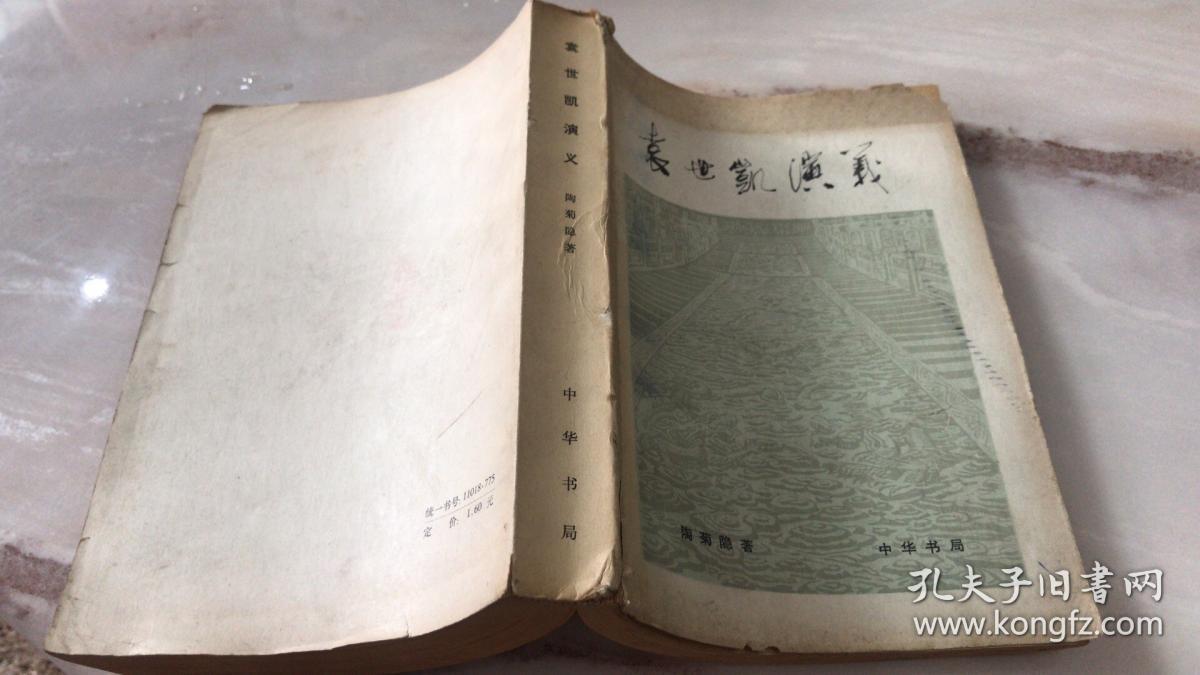 袁世凯演义
陶菊隐著
中华书局
袁世凱演義
陶菊隐著
中华书局
统一书号:11018·775
定 价: 1.60 元
孔夫子旧书网
www.kongfz.com